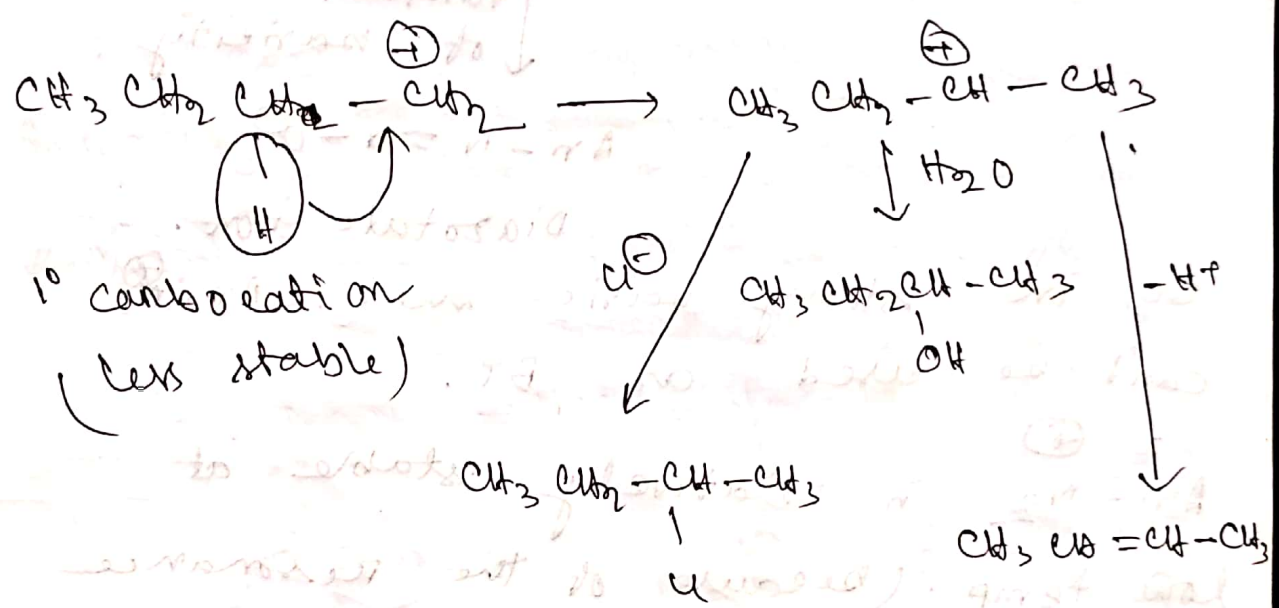 CH3 CH2 CH – CH2 ⊕ ⟶ CH3 CH2 – CH ⊕ – CH3
H
H2O
1° carbocation
(less stable)
Cl⊖
CH3 CH2 CH – CH3
OH
– H+
CH3 CH2 – CH – CH3
Cl
CH3 CH = CH – CH3